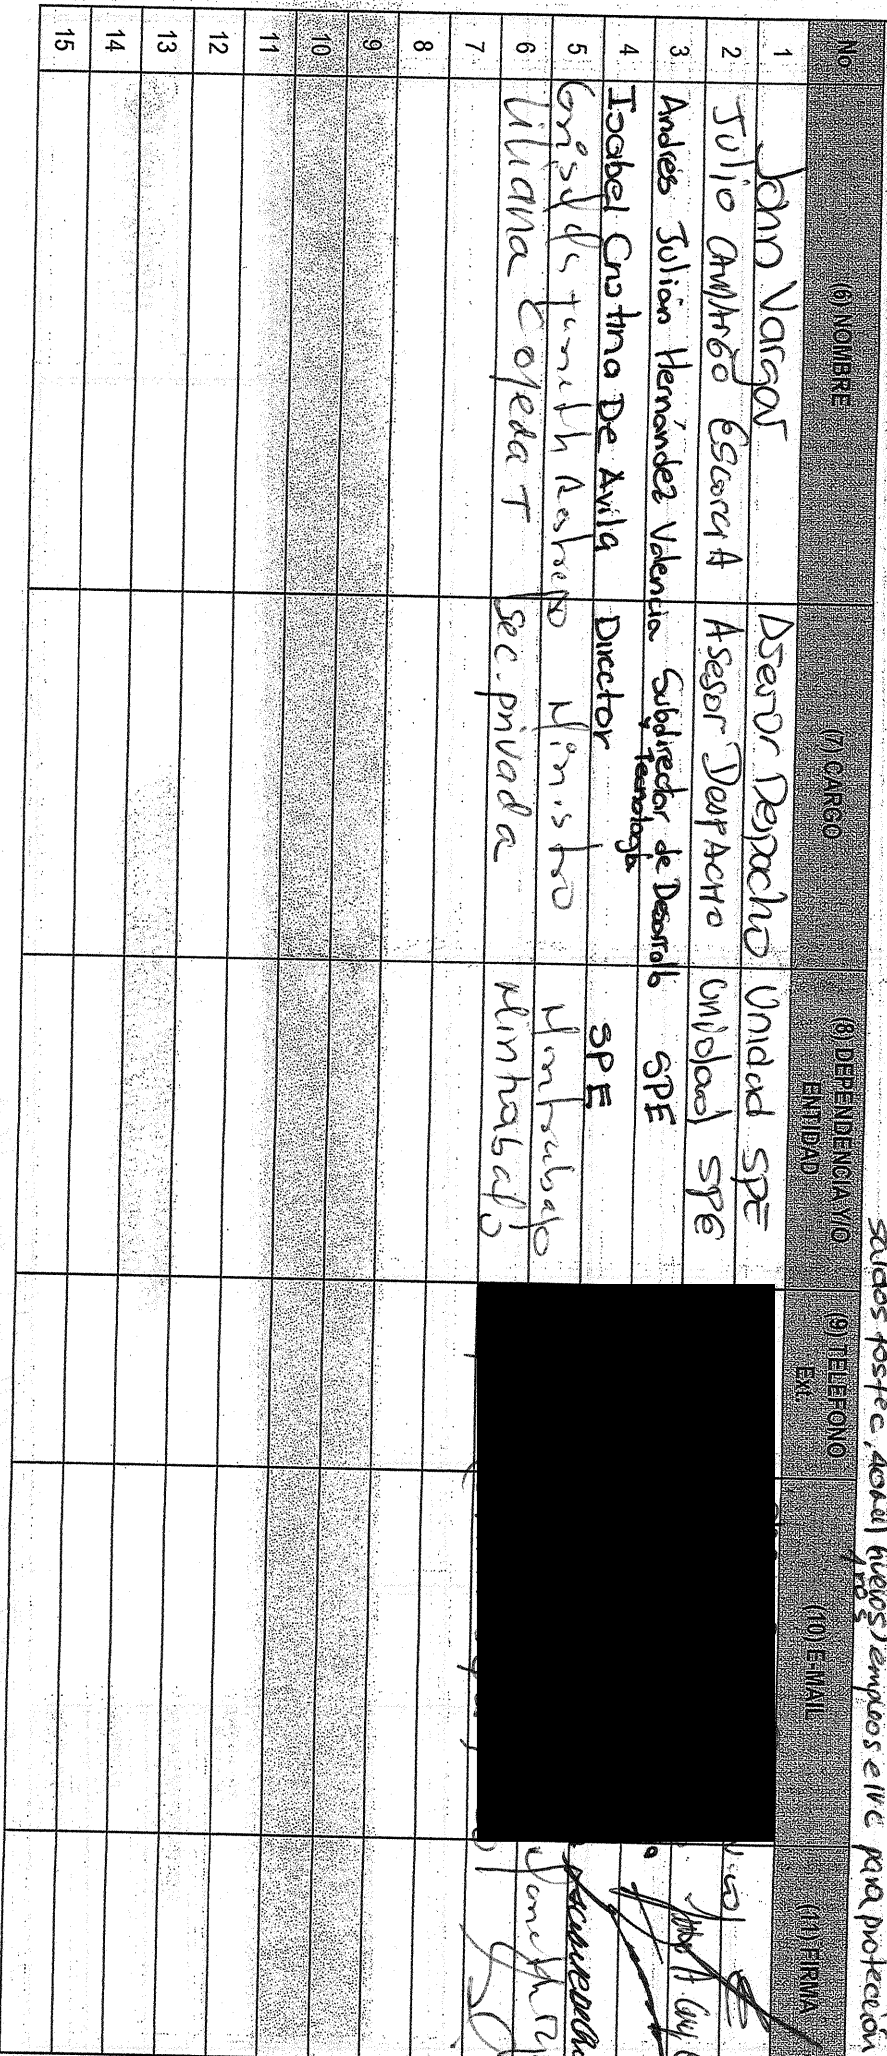 saldos fosfec, nuevos empleos e IVC para protección
No (6) NOMBRE (7) CARGO (8) DEPENDENCIA Y/O ENTIDAD (9) TELEFONO Ext. (10) E-MAIL (11) FIRMA
1 John Vargas Asesor Despacho Unidad SPE
2 Julio CAMArGO EScorciA Asesor DespAcHo Unidad SPE
3 Andres Julian Hernández Valencia Subdirector de Desarrollo y Tecnología SPE
4 Isabel Cristina De Avila Director SPE
5 Griselda Janeth Restrepo Ministro Mintrabajo
6 Liliana Cojeda T Sec. privada Mintrabajo
7
8
9
10
11
12
13
14
15